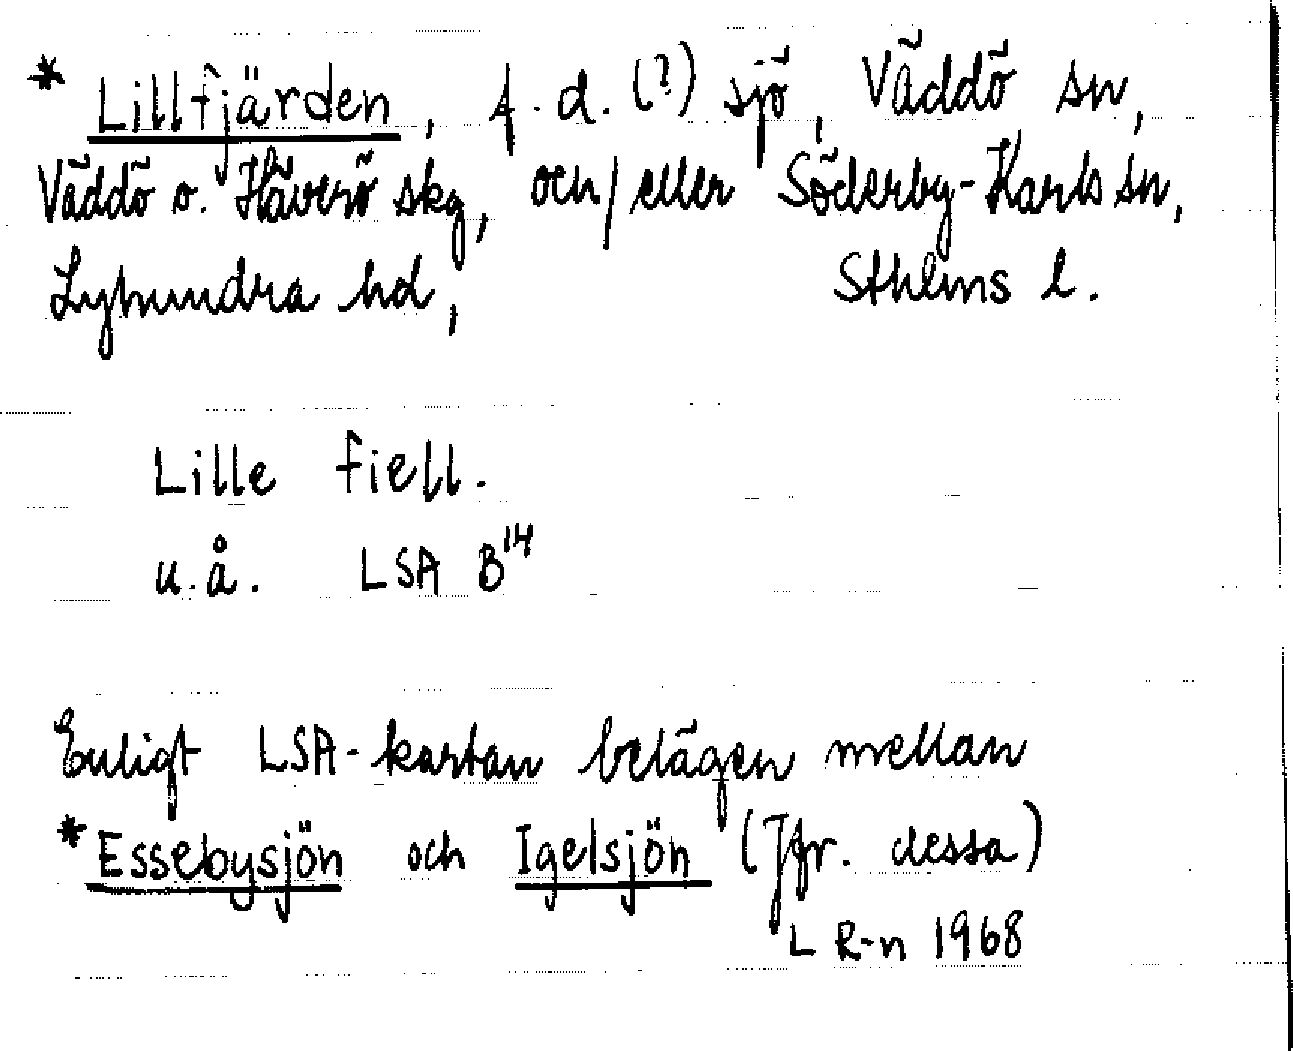 * Lillfjärden, f.d. (?) sjö, Väddö sn,
Väddö o. Häverö skg, och/eller Söderby-Karls sn,
Lyhundra hd, Sthlms l.
Lille fiell.
u.å. LSA B¹⁴
Enligt LSA-kartan belägen mellan
* Essebysjön och Igelsjön (Jfr. dessa)
L R-n 1968